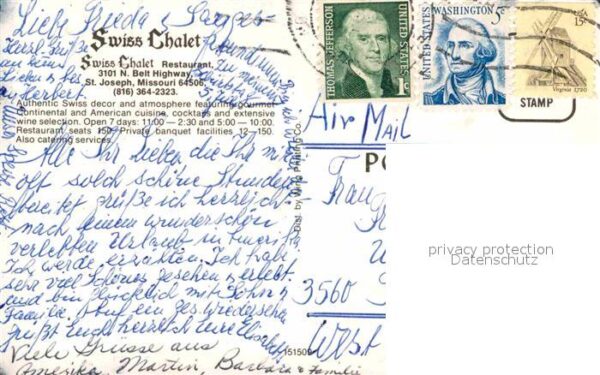 Liebe Frieda u.
Swiss Chalet
Swiss Chalet Restaurant
3101 N. Belt Highway
St. Joseph, Missouri 64506
(816) 364-2323
Authentic Swiss decor and atmosphere featuring gourmet
Continental and American cuisine, cocktails and extensive
wine selection. Open 7 days: 11:00 — 2:30 and 5:00 — 10:00.
Restaurant seats 150. Private banquet facilities 12—150.
Also catering services.
Alle Ihr Lieben die Ihr mir
oft solch schöne Stunden
bereitet grüße ich herzlich
nach einem wunderschön
verlebten Urlaub in Amerika
Ich werde erzählen. Ich habe
sehr viel Schönes gesehen u. erlebt
und bin glücklich mit Sohn u.
Familie. Auf ein ges. Wiedersehen
grüßt Euch herzlich Eure
Viele Grüsse aus
Amerika, Martin, Barbara & Familie
THOMAS JEFFERSON
UNITED STATES
1c
UNITED STATES
WASHINGTON 5c
USA
15c
Virginia 1720
STAMP
Air Mail
PO
Frau
3560
West
151509
privacy protection
Datenschutz